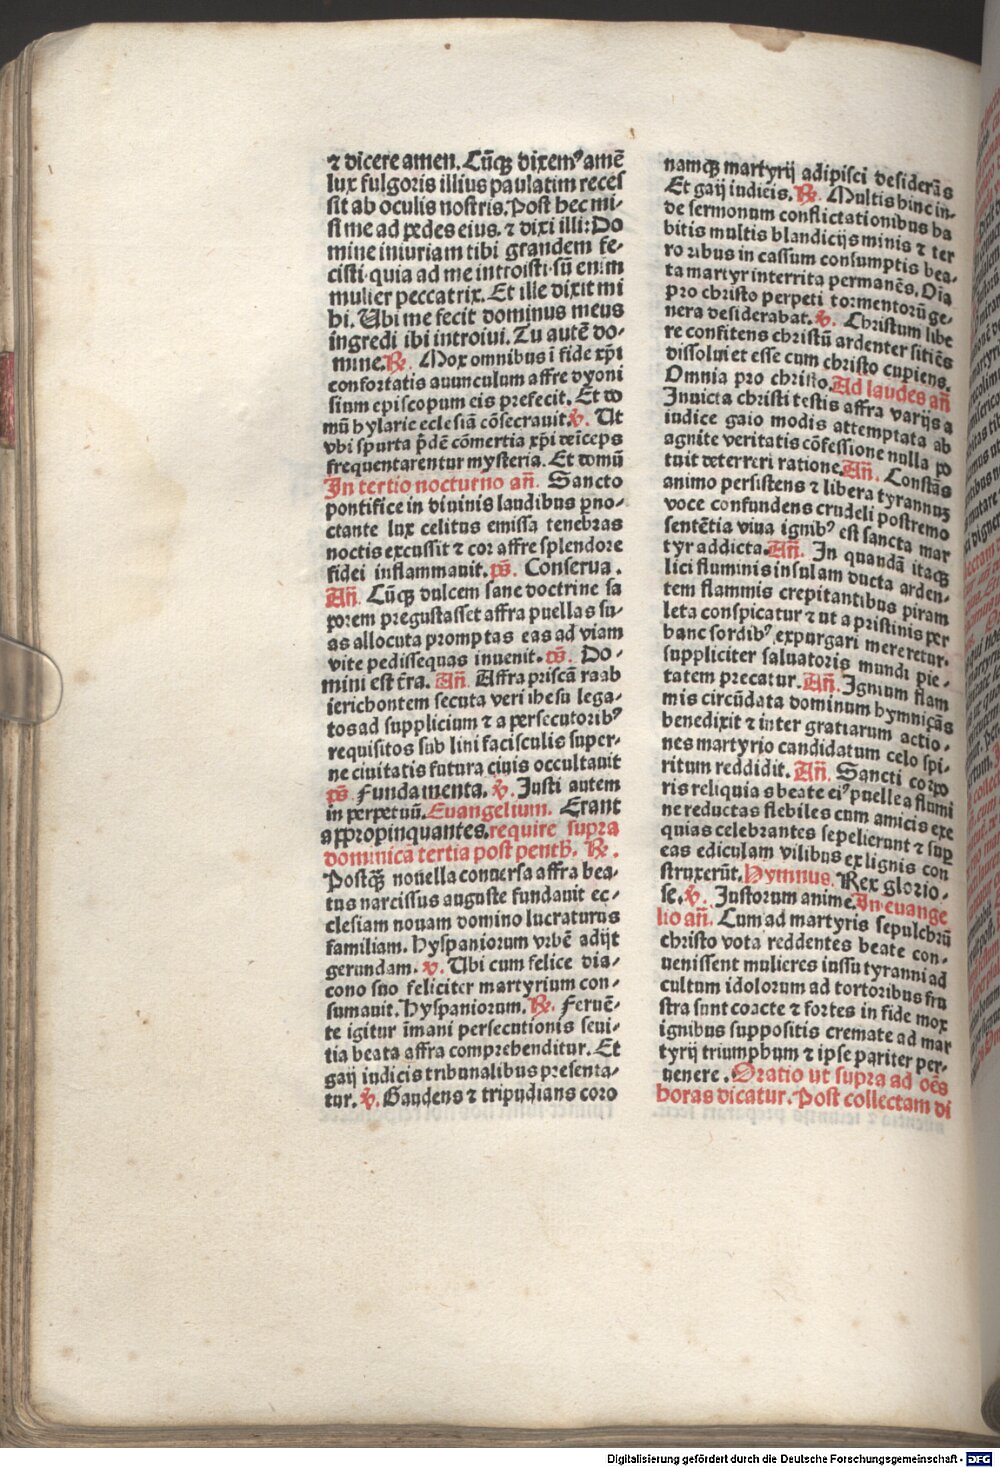 ⁊ dicere amen. Cūqꝫ dixemꝰ amē
lux fulgoris illius paulatim receſ
ſit ab oculis noſtris. Poſt hec mi⸗
ſi me ad pedes eius. ⁊ dixi illi: Do
mine iniuriam tibi grandem fe⸗
ciſti quia ad me introiſti ſū enim
mulier peccatrix. Et ille dixit mi
hi. Ubi me fecit dominus meus
ingredi ibi introiui. Tu autē do⸗
mine. ℟. Mox omnibus ī fide xp̄i
confortatis auunculum affre dyoni
ſium epiſcopum eis prefecit. Et do
mū hylarie eccleſiā cōſecrauit. ℣. Ut
vbi ſpurta p̄dē cōmertia xp̄i deīceps
frequentarentur myſteria. Et domū
In tertio nocturno an̄. Sancto
pontifice in diuinis laudibus p̱no⸗
ctante lux celitus emiſſa tenebras
noctis excuſſit ⁊ cor affre ſplendore
fidei inflammauit. ps̄. Conſerua.
An̄. Cūqꝫ dulcem ſane doctrine ſa
porem preguſtaſſet affra puellas ſu⸗
as allocuta promptas eas ad viam
vite pediſſequas inuenit. ps̄. Do⸗
mini eſt t̄ra. An̄. Affra priſcā raab
ierichontem ſecuta veri iheſu lega⸗
tos ad ſupplicium ⁊ a perſecutoribꝰ
requiſitos ſub lini faciſculis ſuper⸗
ne ciuitatis futura ciuis occultauit
ps̄ Fundamenta. ℣. Juſti autem
in perpetuū. Euangelium. Erant
appropinquantes. require ſupra
dominica tertia poſt penth. ℟.
Poſtqꝫ nouella conuerſa affra bea⸗
tus narciſſus auguſte fundauit ec⸗
cleſiam nouam domino lucraturus
familiam. Hyſpaniorum vrbē adijt
gerundam. ℣. Ubi cum felice dia⸗
cono ſuo feliciter martyrium con⸗
ſumauit. Hyſpaniorum. ℟. Feruē⸗
te igitur īmani perſecutionis ſeui⸗
tia beata affra comprehenditur. Et
gaij iudicis tribunalibus preſenta⸗
tur. ℣. Gaudens ⁊ tripudians coro
namqꝫ martyrij adipiſci deſiderās
Et gaij iudicis. ℟. Multis hinc in⸗
de ſermonum conflictationibus ha
bitis multis blandicijs minis ⁊ ter
roribus in caſſum conſumptis bea⸗
ta martyr interrita permanēs. Oīa
pro chriſto perpeti tormentorū ge⸗
nera deſiderabat. ℣. Chriſtum libe
re confitens chriſtū ardenter ſitiēs
diſſolui et eſſe cum chriſto cupiens.
Omnia pro chriſto. Ad laudes an̄
Inuicta chriſti teſtis affra varijs a
iudice gaio modis attemptata ab
agnite veritatis cōfeſſione nulla po
tuit deterreri ratione. An̄. Conſtās
animo perſiſtens ⁊ libera tyrannuꝫ
voce confundens crudeli poſtremo
ſentētia viua ignibꝰ eſt ſancta mar
tyr addicta. An̄. In quandā itaqꝫ
lici fluminis inſulam ducta arden⸗
tem flammis crepitantibus piram
leta conſpicatur ⁊ ut a priſtinis per
hanc ſordibꝰ expurgari mereretur.
ſuppliciter ſaluatoris mundi pie⸗
tatem precatur. An̄. Ignium flam
mis circūdata dominum hymniçās
benedixit ⁊ inter gratiarum actio⸗
nes martyrio candidatum celo ſpi⸗
ritum reddidit. An̄. Sancti corpo
ris reliquias beate eiꝰ puelle a flumi
ne reductas flebiles cum amicis exe
quias celebrantes ſepelierunt ⁊ ſup̱
eas ediculam vilibus ex lignis con
ſtruxerūt. Hymnus. Rex glorio⸗
ſe. ℣. Juſtorum anime. In euange
lio an̄. Cum ad martyris ſepulchrū
chriſto vota reddentes beate con⸗
ueniſſent mulieres iuſſu tyranni ad
cultum idolorum ad tortoribus fru
ſtra ſunt coacte ⁊ fortes in fide mox
ignibus ſuppoſitis cremate ad mar
tyrij triumphum ⁊ ipſe pariter per⸗
uenere. Oratio ut ſupra ad oēs
horas dicatur. Poſt collectam di
Digitalisierung gefördert durch die Deutsche Forschungsgemeinschaft - DFG